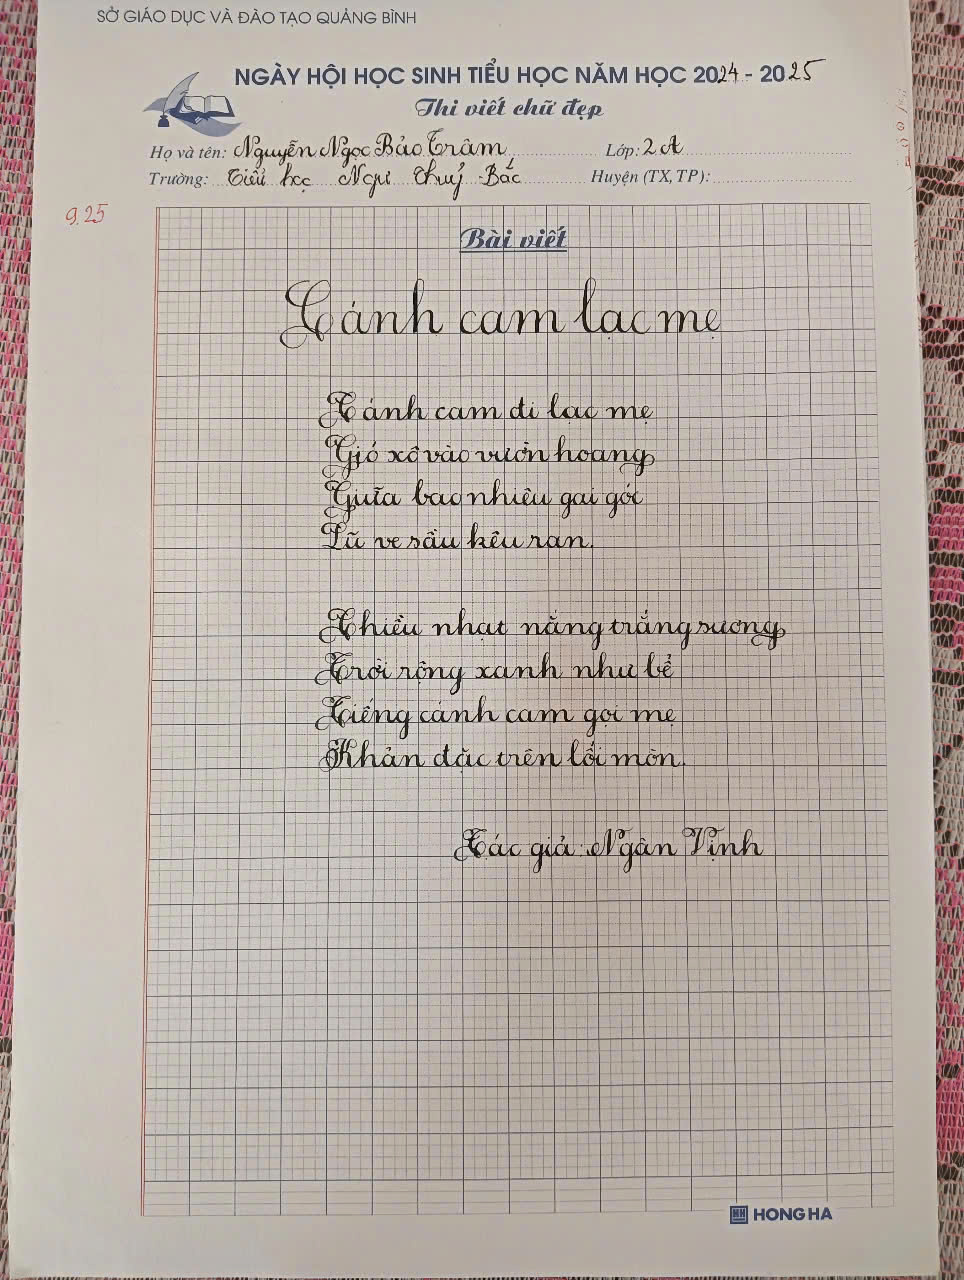 SỞ GIÁO DỤC VÀ ĐÀO TẠO QUẢNG BÌNH
NGÀY HỘI HỌC SINH TIỂU HỌC NĂM HỌC 2024 - 2025
Thi viết chữ đẹp
Họ và tên: Nguyễn Ngọc Bảo Trâm Lớp: 2A
Trường: Tiểu học Ngư Thuỷ Bắc Huyện (TX, TP):
9.25
Bài viết
Cánh cam lạc mẹ
Cánh cam đi lạc mẹ
Gió xô vào vườn hoang
Giữa bao nhiêu gai góc
Lũ ve sầu kêu ran.
Chiều nhạt nắng trắng sương
Trời rộng xanh như bể
Tiếng cánh cam gọi mẹ
Khản đặc trên lối mòn.
Tác giả: Ngân Vịnh
HONG HA